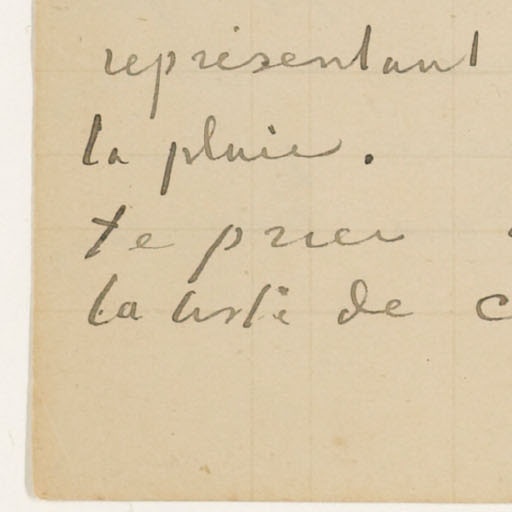 représentant
la pluie.
te prier
la liste de c